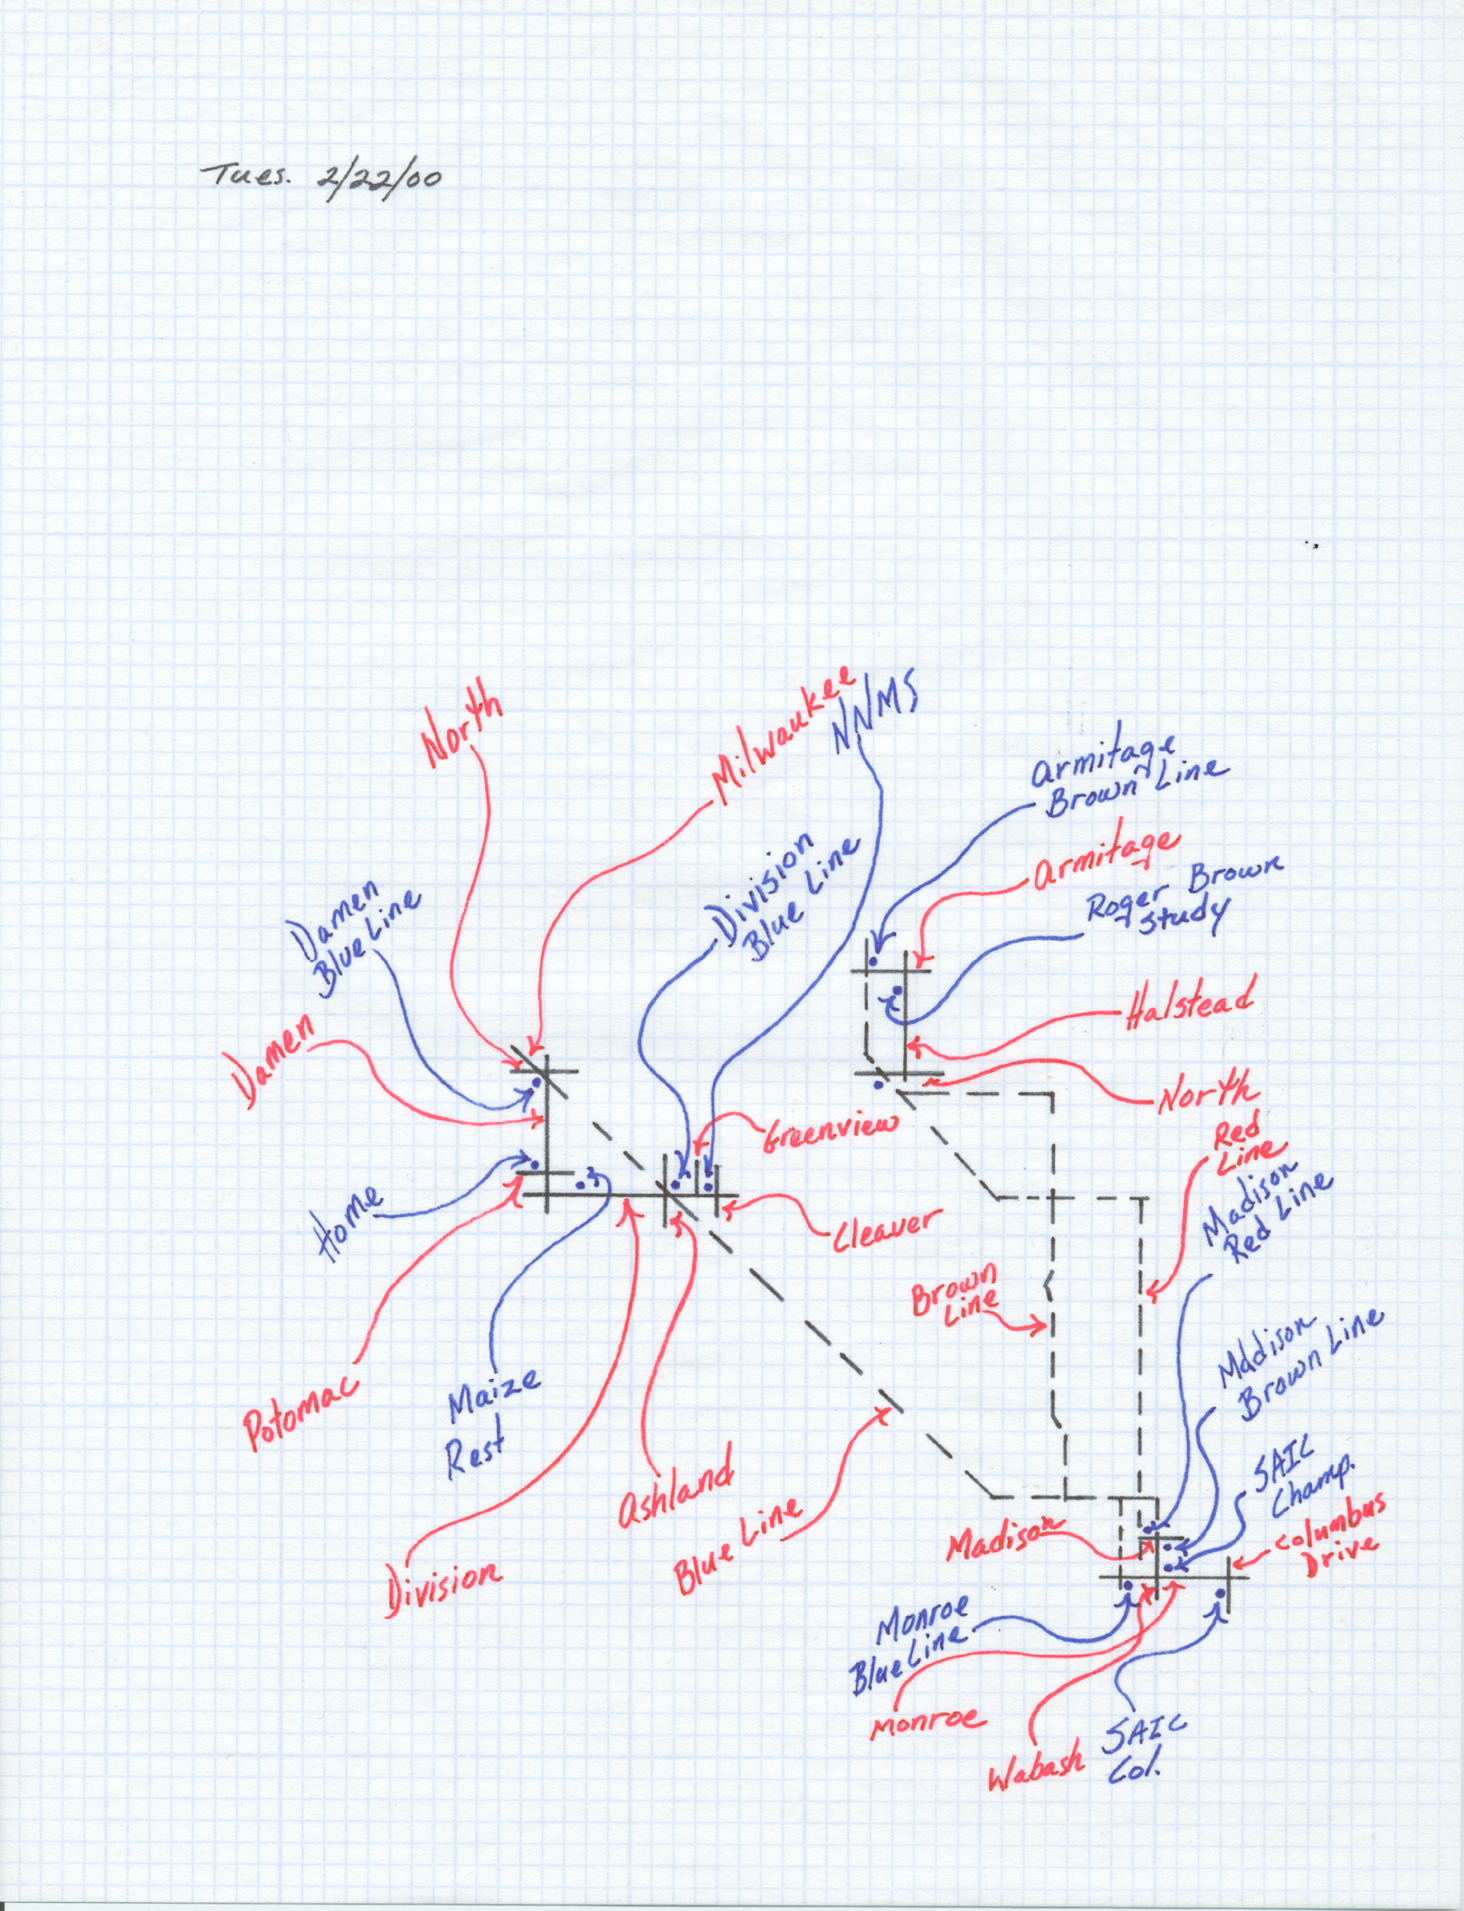 Tues. 2/22/00
North
Milwaukee
NNMS
Armitage
Brown Line
Armitage
Roger Brown
Study
Division
Blue Line
Damen
Blue Line
Damen
Halstead
North
Greenview
Red
Line
Madison
Red Line
Home
Cleaver
Brown
Line
Maddison
Brown Line
Potomac
Maize
Rest
SAIC
Champ.
Ashland
Blue Line
Madison
Columbus
Drive
Division
Monroe
Blue Line
Monroe
Wabash
SAIC
Col.